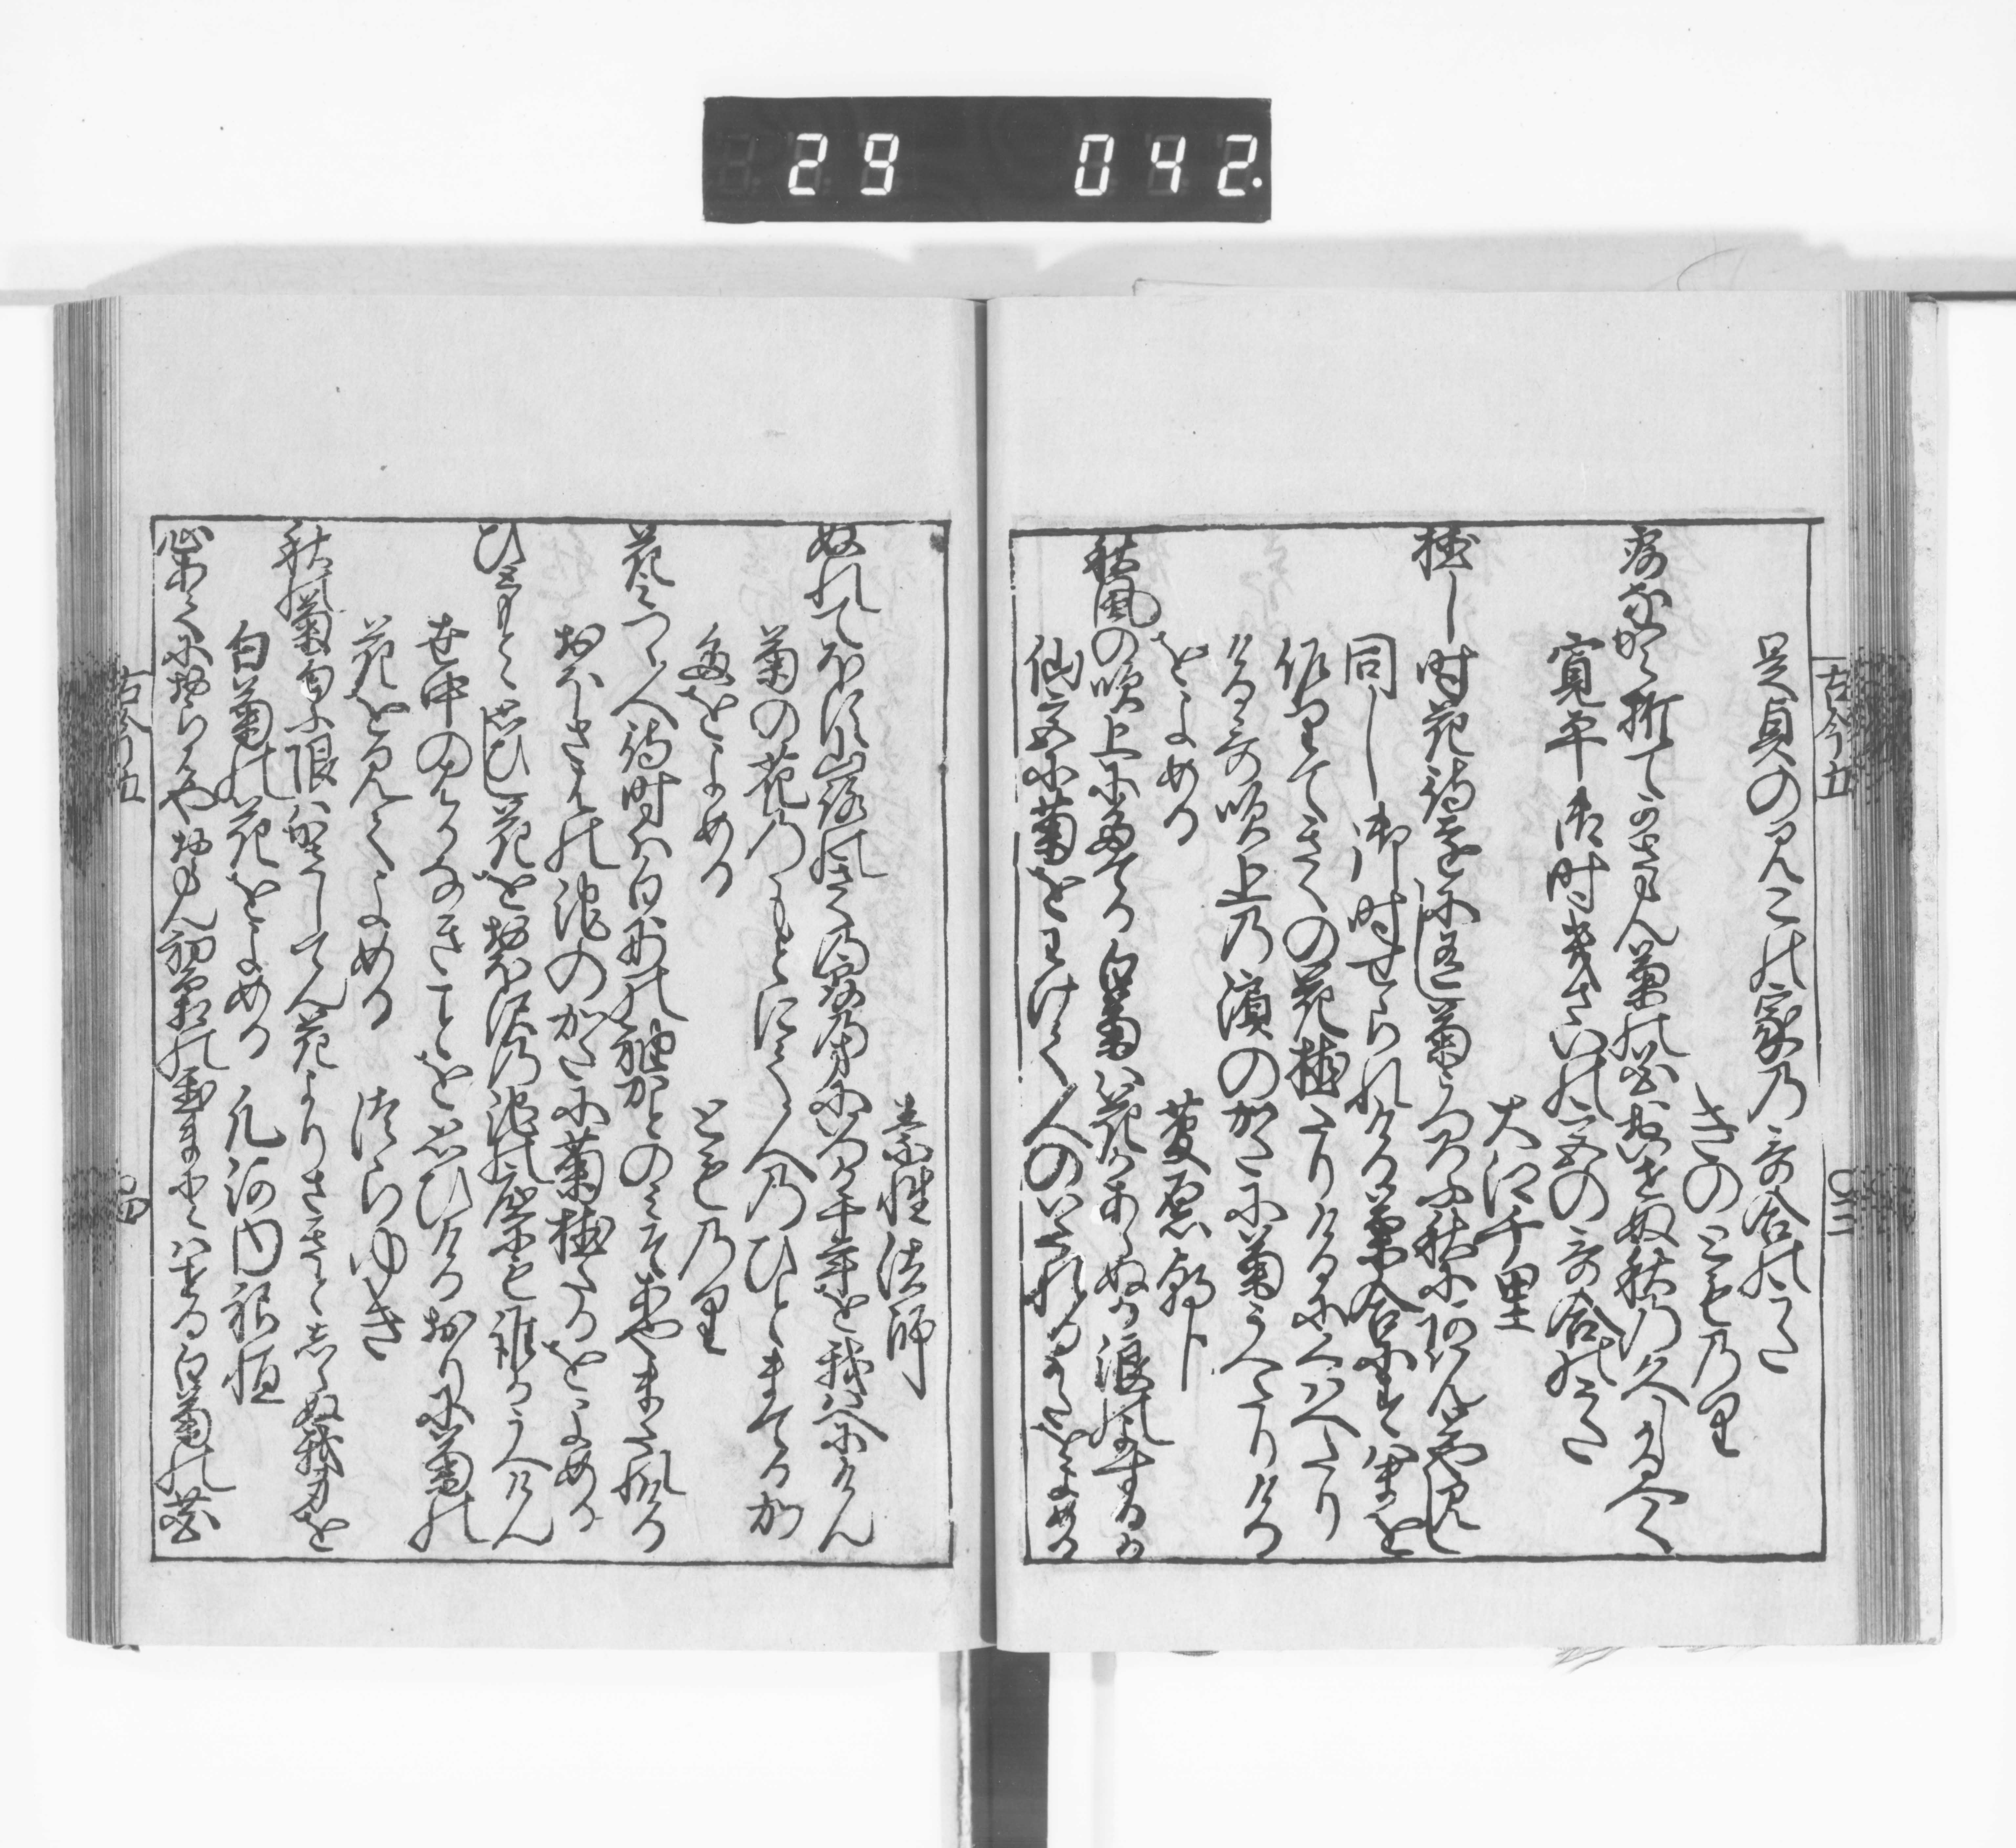 29 042.
古今五
是貞のみこの家乃哥合のうた
きのとも乃里
露なから折てかさゝん菊の花おいせぬ秋乃久しかるへく
寛平御時きさいの宮の哥合のうた
大江千里
植し時花待遠に有し菊うつろふ秋にあはんとやみし
同し御時せられける菊合にすはまを
作りてきくの花植たりけるにくはへたり
ける哥吹上乃濱のかたに菊うへたりける
をよめる
菅原朝臣
秋風の吹上にたてる白菊は花かあらぬか浪のよするか
仙宮に菊をわけて人のいたれるかたをよめる
素性法師
ぬれてほす山路の菊の露のまにいつか千年を我はへにけん
菊の花乃もとにて人乃ひとまてるか
たをよめる
とも乃里
花みつゝ人待時は白妙の袖かとのみそあやまたれける
おほさはの池のかたに菊植たるをよめる
ひともとゝ思ひし花をおほ沢の池の底にも誰かうへけん
世中のはかなきことを思ひけるおりに菊の
花をみてよめる
つらゆき
秋の菊匂ふ限はかさしてん花よりさきとしらぬ我身を
白菊の花をよめる
凡河内躬恒
心あてにおらはやおらん初霜の置まとはせる白菊の花
古今五
四